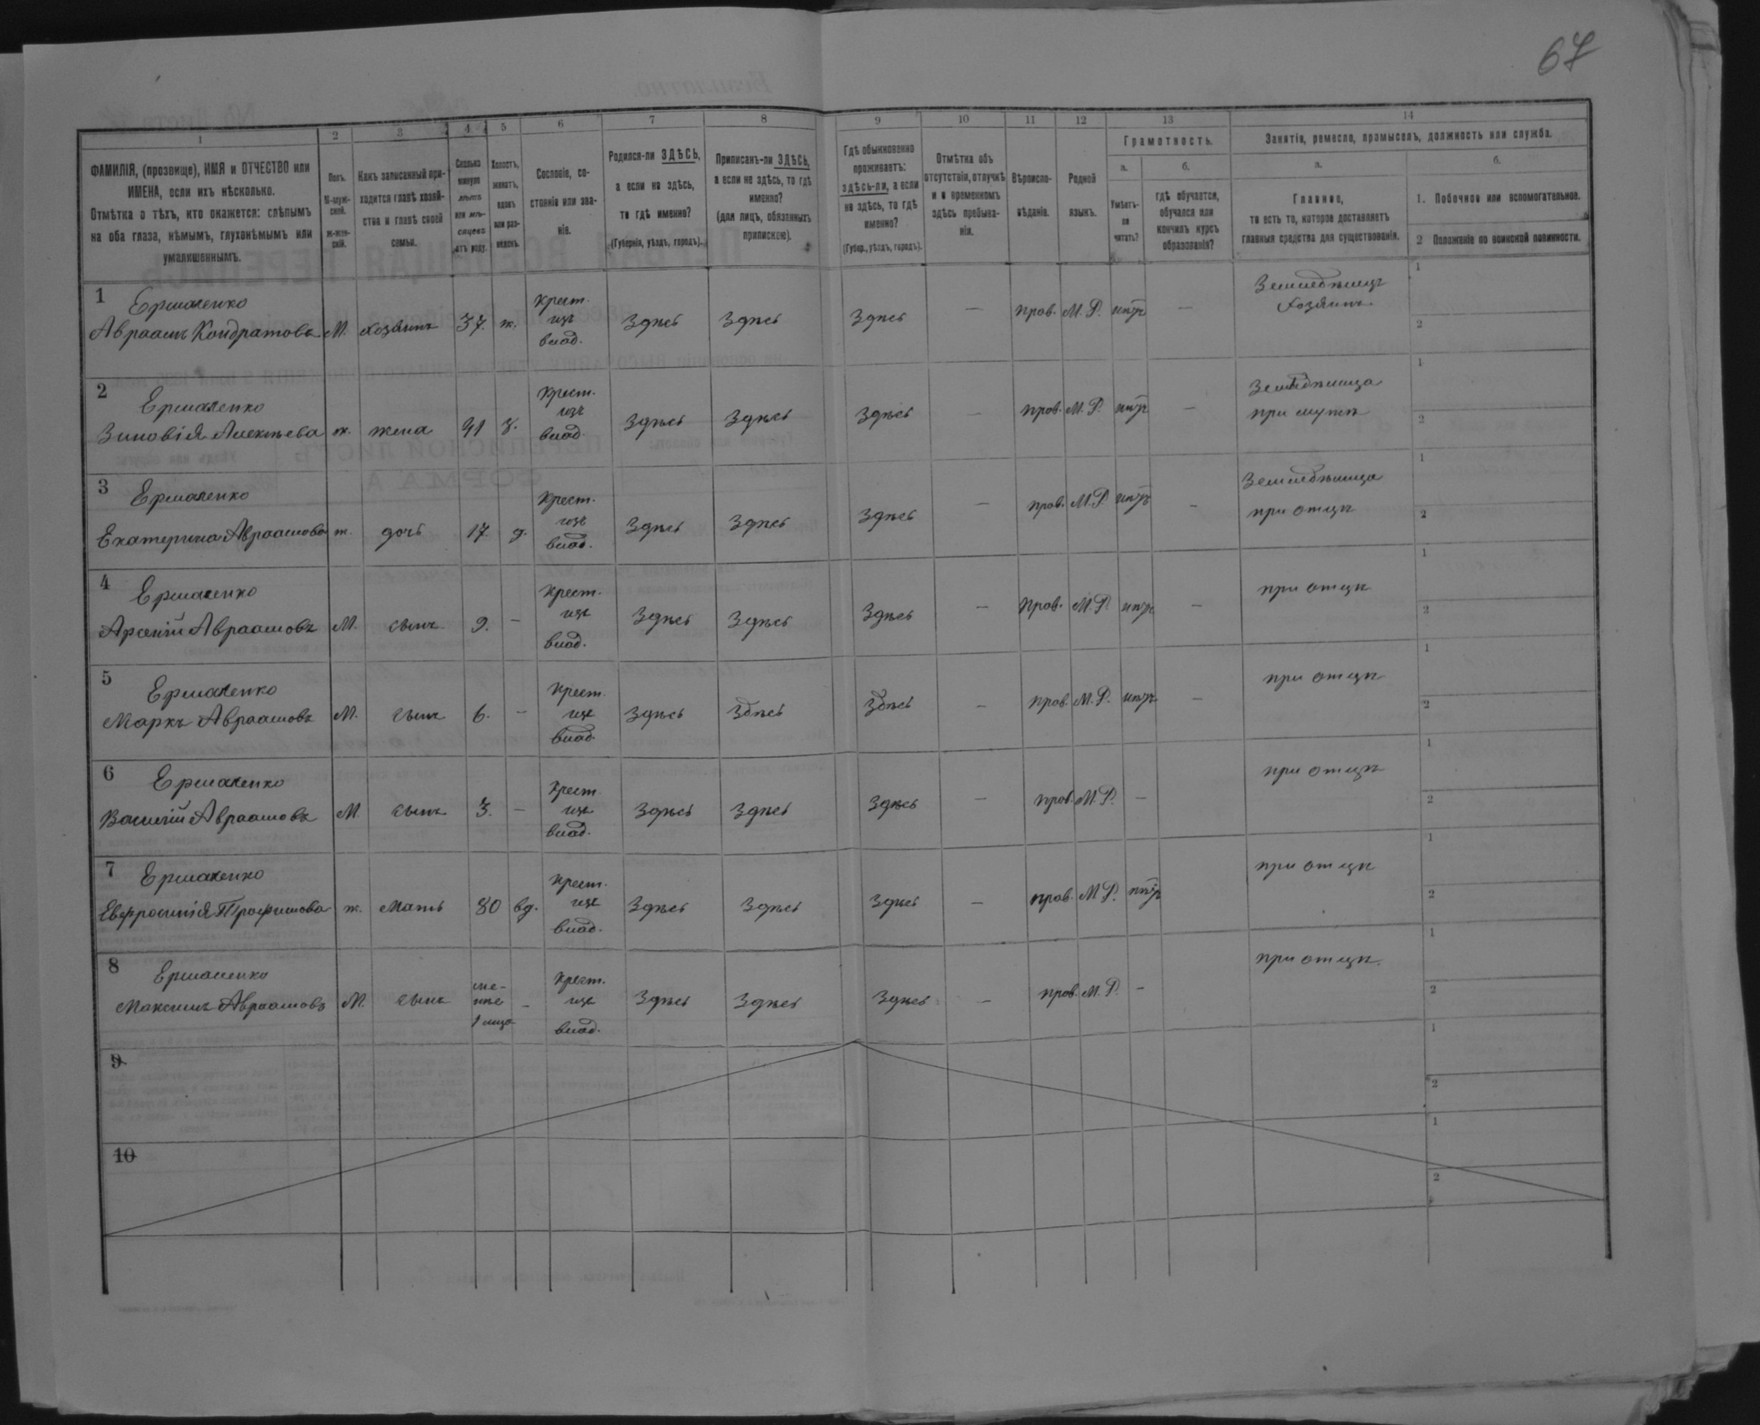 67
1 2 3 4 5 6 7 8 9 10 11 12 13 14
ФАМИЛІЯ, (прозвище), ИМЯ и ОТЧЕСТВО или
ИМЕНА, если ихъ нѣсколько.
Отмѣтка о тѣхъ, кто окажется: слѣпымъ
на оба глаза, нѣмымъ, глухонѣмымъ или
умалишеннымъ.
Полъ.
М-мужс-
ской.
Ж-жен-
скій.
Какъ записанный при-
ходится главѣ хозяй-
ства и главѣ своей
семьи.
Сколько
минуло
лѣтъ
или мѣ-
сяцевъ
отъ роду.
Холостъ,
женатъ,
вдовъ
или раз-
веденъ.
Сословіе, со-
стояніе или зва-
ніе.
Родился-ли ЗДѢСЬ,
а если не здѣсь,
то гдѣ именно?
(Губернія, уѣздъ, городъ).
Приписанъ-ли ЗДѢСЬ,
а если не здѣсь, то гдѣ
именно?
(для лицъ, обязанныхъ
припискою).
Гдѣ обыкновенно
проживаетъ:
здѣсь-ли, а если
не здѣсь, то гдѣ
именно?
(Губер., уѣздъ, городъ).
Отмѣтка объ
отсутствіи, отлучкѣ
и о временномъ
здѣсь пребыва-
ніи.
Вѣроиспо-
вѣданіе.
Родной
языкъ.
Грамотность.
а.
Умѣетъ-
ли
читать?
б.
гдѣ обучается,
обучался или
кончилъ курсъ
образованія?
Занятіе, ремесло, промыселъ, должность или служба.
а.
Главное,
то есть то, которое доставляетъ
главныя средства для существованія.
б.
1. Побочное или вспомогательное.
2 Положеніе по воинской повинности.
1 Ермаленко
Авраамъ Кондратовъ М. хозяинъ 37. ж. Крест.
изъ
влад. Здѣсь Здѣсь Здѣсь — прав. М. Р. нѣтъ — Земледѣлецъ
хозяинъ 1
2
2 Ермаленко
Зиновія Алексѣева ж. жена 41 з. Крест.
изъ
влад. Здѣсь Здѣсь Здѣсь — прав. М. Р. нѣтъ — Земледѣлица
при мужѣ 1
2
3 Ермаленко
Екатерина Авраамова ж. дочь 17 д. Крест.
изъ
влад. Здѣсь Здѣсь Здѣсь — прав. М. Р. нѣтъ — Земледѣлица
при отцѣ 1
2
4 Ермаленко
Арсеній Авраамовъ М. сынъ 9. — Крест.
изъ
влад. Здѣсь Здѣсь Здѣсь — прав. М. Р. нѣтъ — при отцѣ 1
2
5 Ермаленко
Маркъ Авраамовъ М. сынъ 6. — Крест.
изъ
влад. Здѣсь Здѣсь Здѣсь — прав. М. Р. нѣтъ — при отцѣ 1
2
6 Ермаленко
Василій Авраамовъ М. сынъ 3. — Крест.
изъ
влад. Здѣсь Здѣсь Здѣсь — прав. М. Р. — при отцѣ 1
2
7 Ермаленко
Евфросинія Трофимова ж. мать 80 вд. Крест.
изъ
влад. Здѣсь Здѣсь Здѣсь — прав. М. Р. нѣтъ при отцѣ 1
2
8 Ермаленко
Максимъ Авраамовъ М. сынъ ме-
нѣе
1 мца — Крест.
изъ
влад. Здѣсь Здѣсь Здѣсь — прав. М. Р. — при отцѣ. 1
2
9 1
2
10 1
2